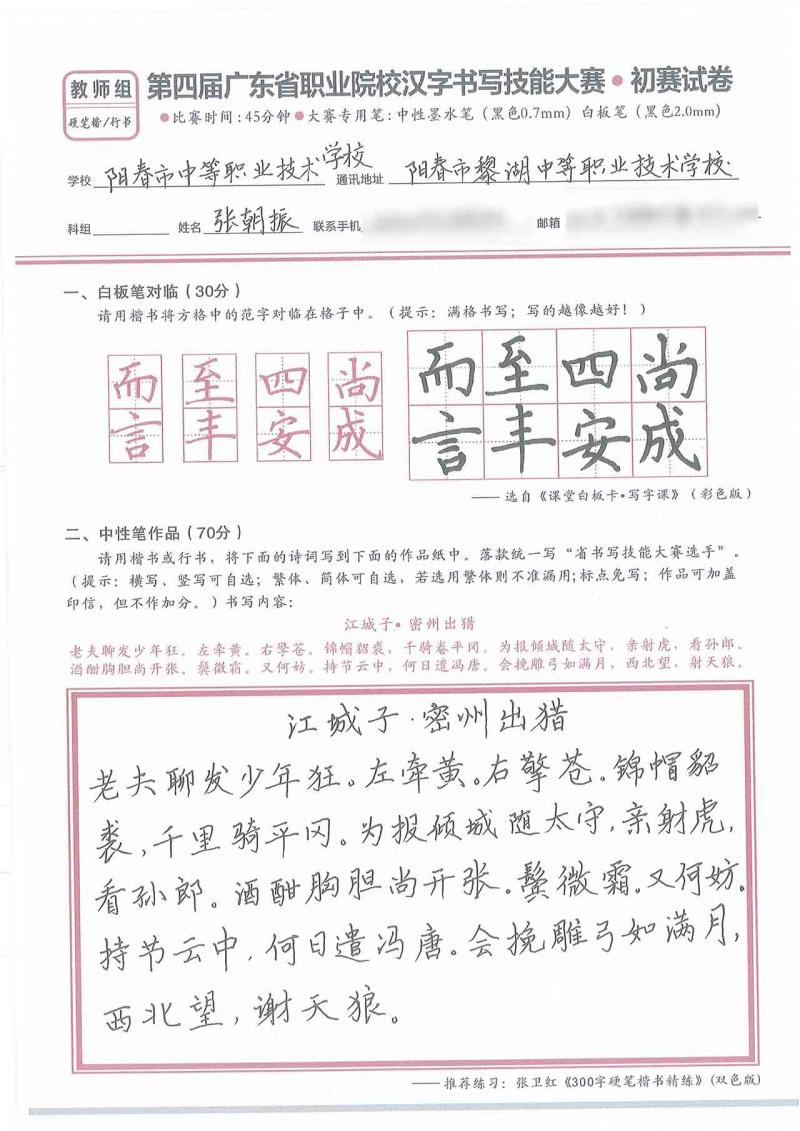 教师组
硬笔楷/行书
第四届广东省职业院校汉字书写技能大赛•初赛试卷
•比赛时间:45分钟•大赛专用笔:中性墨水笔（黑色0.7mm）白板笔（黑色2.0mm）
学校 阳春市中等职业技术学校 通讯地址 阳春市黎湖中等职业技术学校
科组 姓名 张朝振 联系手机 邮箱
一、白板笔对临（30分）
请用楷书将方格中的范字对临在格子中。（提示：满格书写；写的越像越好！）
而 至 四 尚 而 至 四 尚
言 丰 安 成 言 丰 安 成
—— 选自《课堂白板卡•写字课》（彩色版）
二、中性笔作品（70分）
请用楷书或行书，将下面的诗词写到下面的作品纸中。落款统一写“省书写技能大赛选手”。
（提示：横写、竖写可自选；繁体、简体可自选，若选用繁体则不准漏用;标点免写；作品可加盖
印信，但不作加分。）书写内容：
江城子•密州出猎
老夫聊发少年狂。左牵黄。右擎苍。锦帽貂裘，千骑卷平冈。为报倾城随太守，亲射虎，看孙郎。
酒酣胸胆尚开张。鬓微霜。又何妨。持节云中，何日遣冯唐。会挽雕弓如满月，西北望，射天狼。
江城子·密州出猎
老夫聊发少年狂。左牵黄。右擎苍。锦帽貂
裘,千里骑平冈。为报倾城随太守,亲射虎,
看孙郎。酒酣胸胆尚开张。鬓微霜。又何妨。
持节云中,何日遣冯唐。会挽雕弓如满月,
西北望,谢天狼。
——推荐练习：张卫红《300字硬笔楷书精练》(双色版)